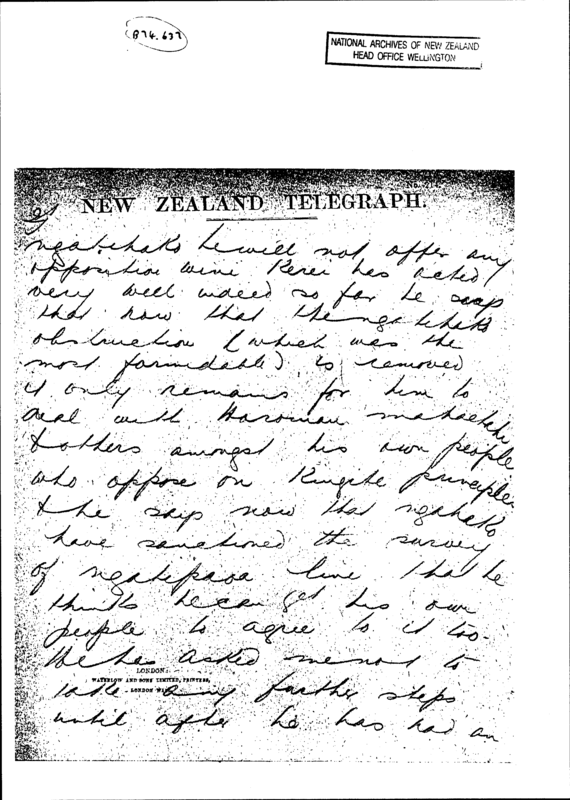 (B74.637)
NATIONAL ARCHIVES OF NEW ZEALAND
HEAD OFFICE WELLINGTON
NEW ZEALAND TELEGRAPH.
of
ngatihako he will not offer any
opposition Wini Kerei has acted
very well indeed so far he says
that now that the ngatihako
obstruction (which was the
most formidable) is removed
it only remains for him to
deal with
& others amongst his own people
who oppose on Kingite principles
& he says now that ngatihako
have sanctioned the survey
of ngatipaoa line that he
thinks he can get his own
people to agree to it too.
He has asked me not to
LONDON:
WATERLOW AND SONS LIMITED, PRINTERS,
LONDON WALL
take any further steps
until after he has had an